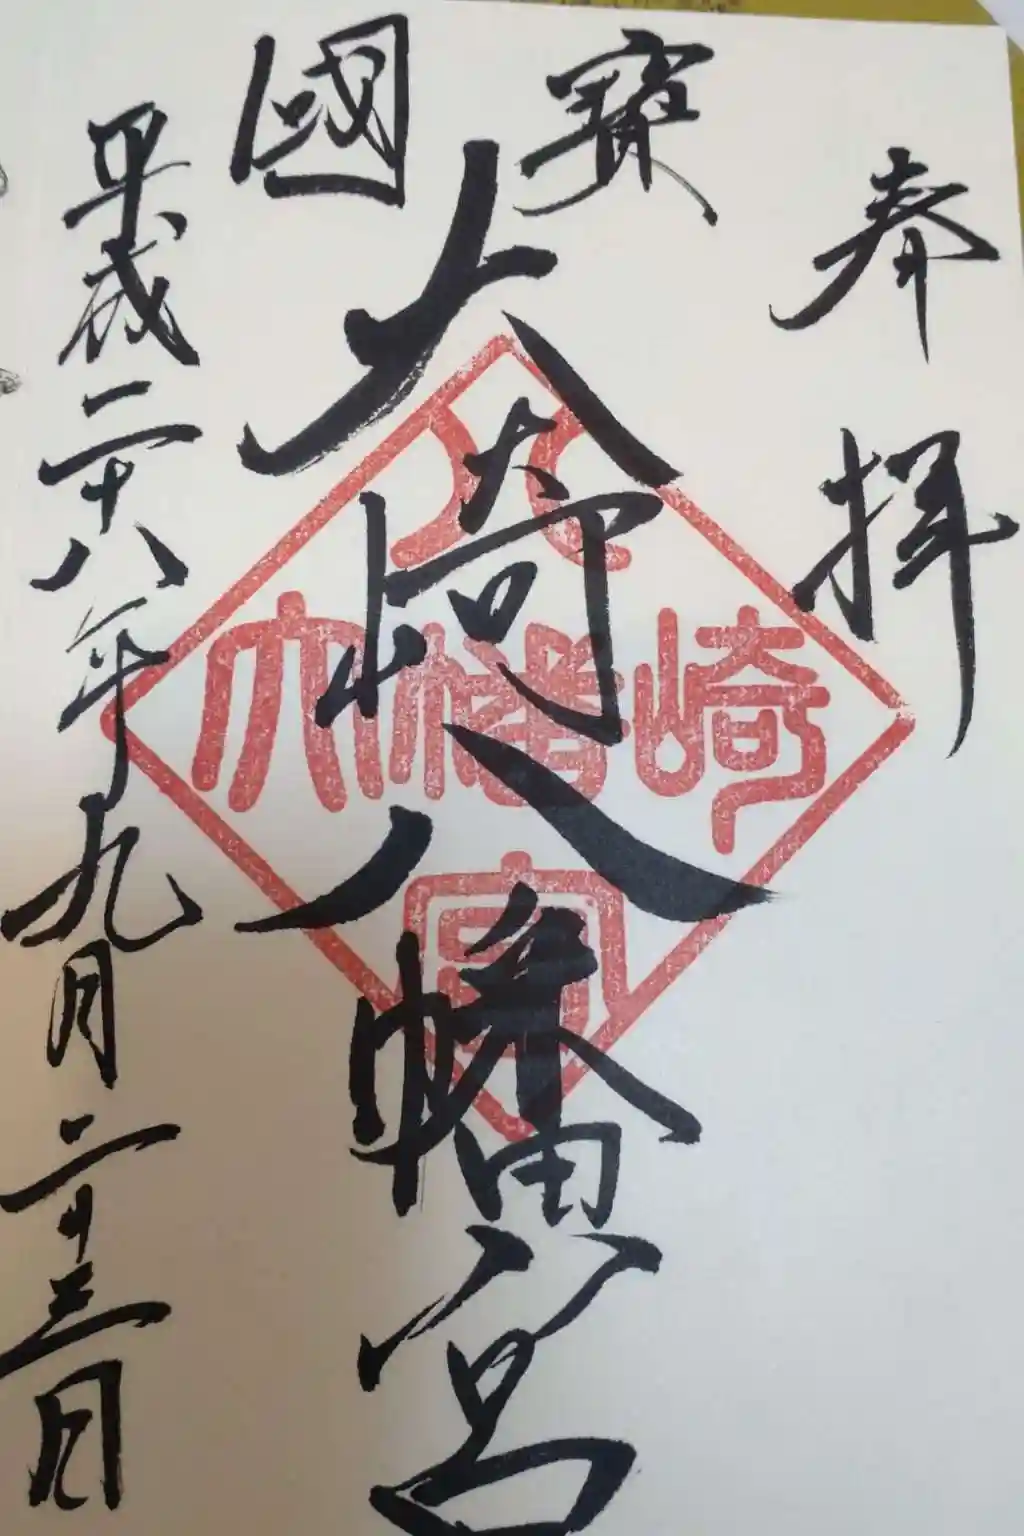 奉拝
國寳
大崎八幡宮
平成二十八年九月二十三日
大崎八幡宮